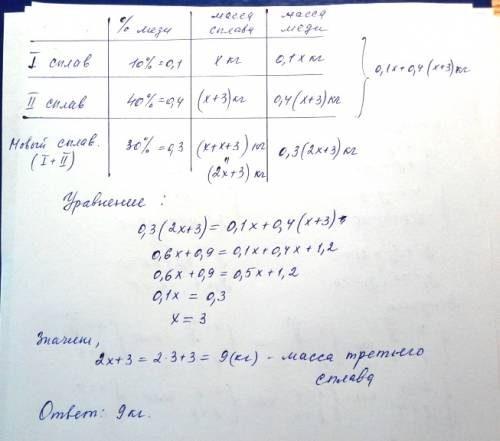 % меди масса сплава масса меди
I сплав 10%=0,1 x кг 0,1x кг
II сплав 40%=0,4 (x+3)кг 0,4(x+3)кг
0,1x+0,4(x+3)кг
Новый сплав. (I+II) 30%=0,3 (x+x+3) кг 0,3(2x+3)кг
"
(2x+3) кг
Уравнение:
0,3(2x+3)=0,1x+0,4(x+3)
0,6x+0,9=0,1x+0,4x+1,2
0,6x+0,9=0,5x+1,2
0,1x=0,3
x=3
Значит,
2x+3=2·3+3=9(кг) - масса третьего
сплава
Ответ: 9кг.